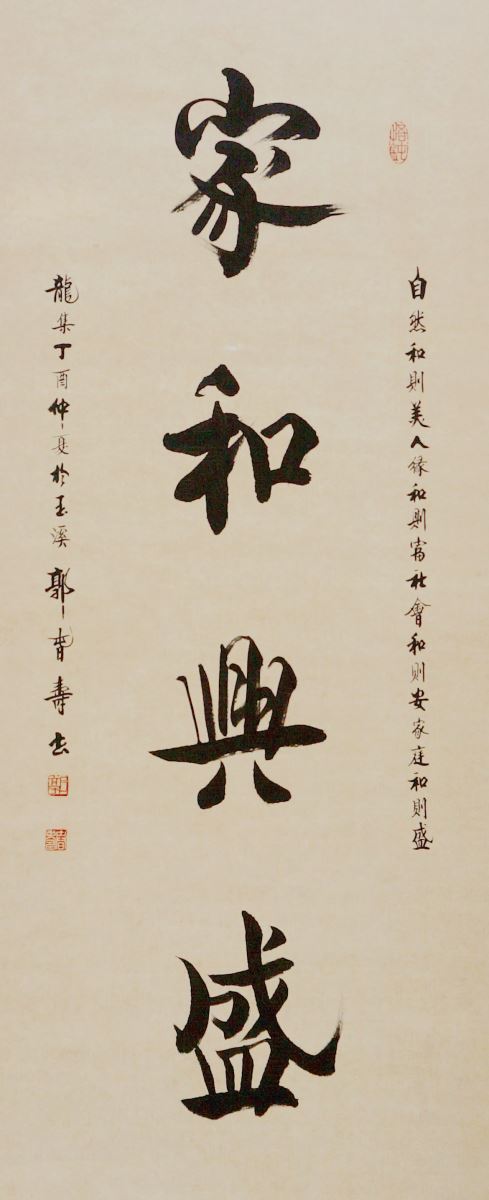 自然和則美人緣和則富社會和則安家庭和則盛
家和興盛
龍集丁酉仲夏於玉溪郭春壽書